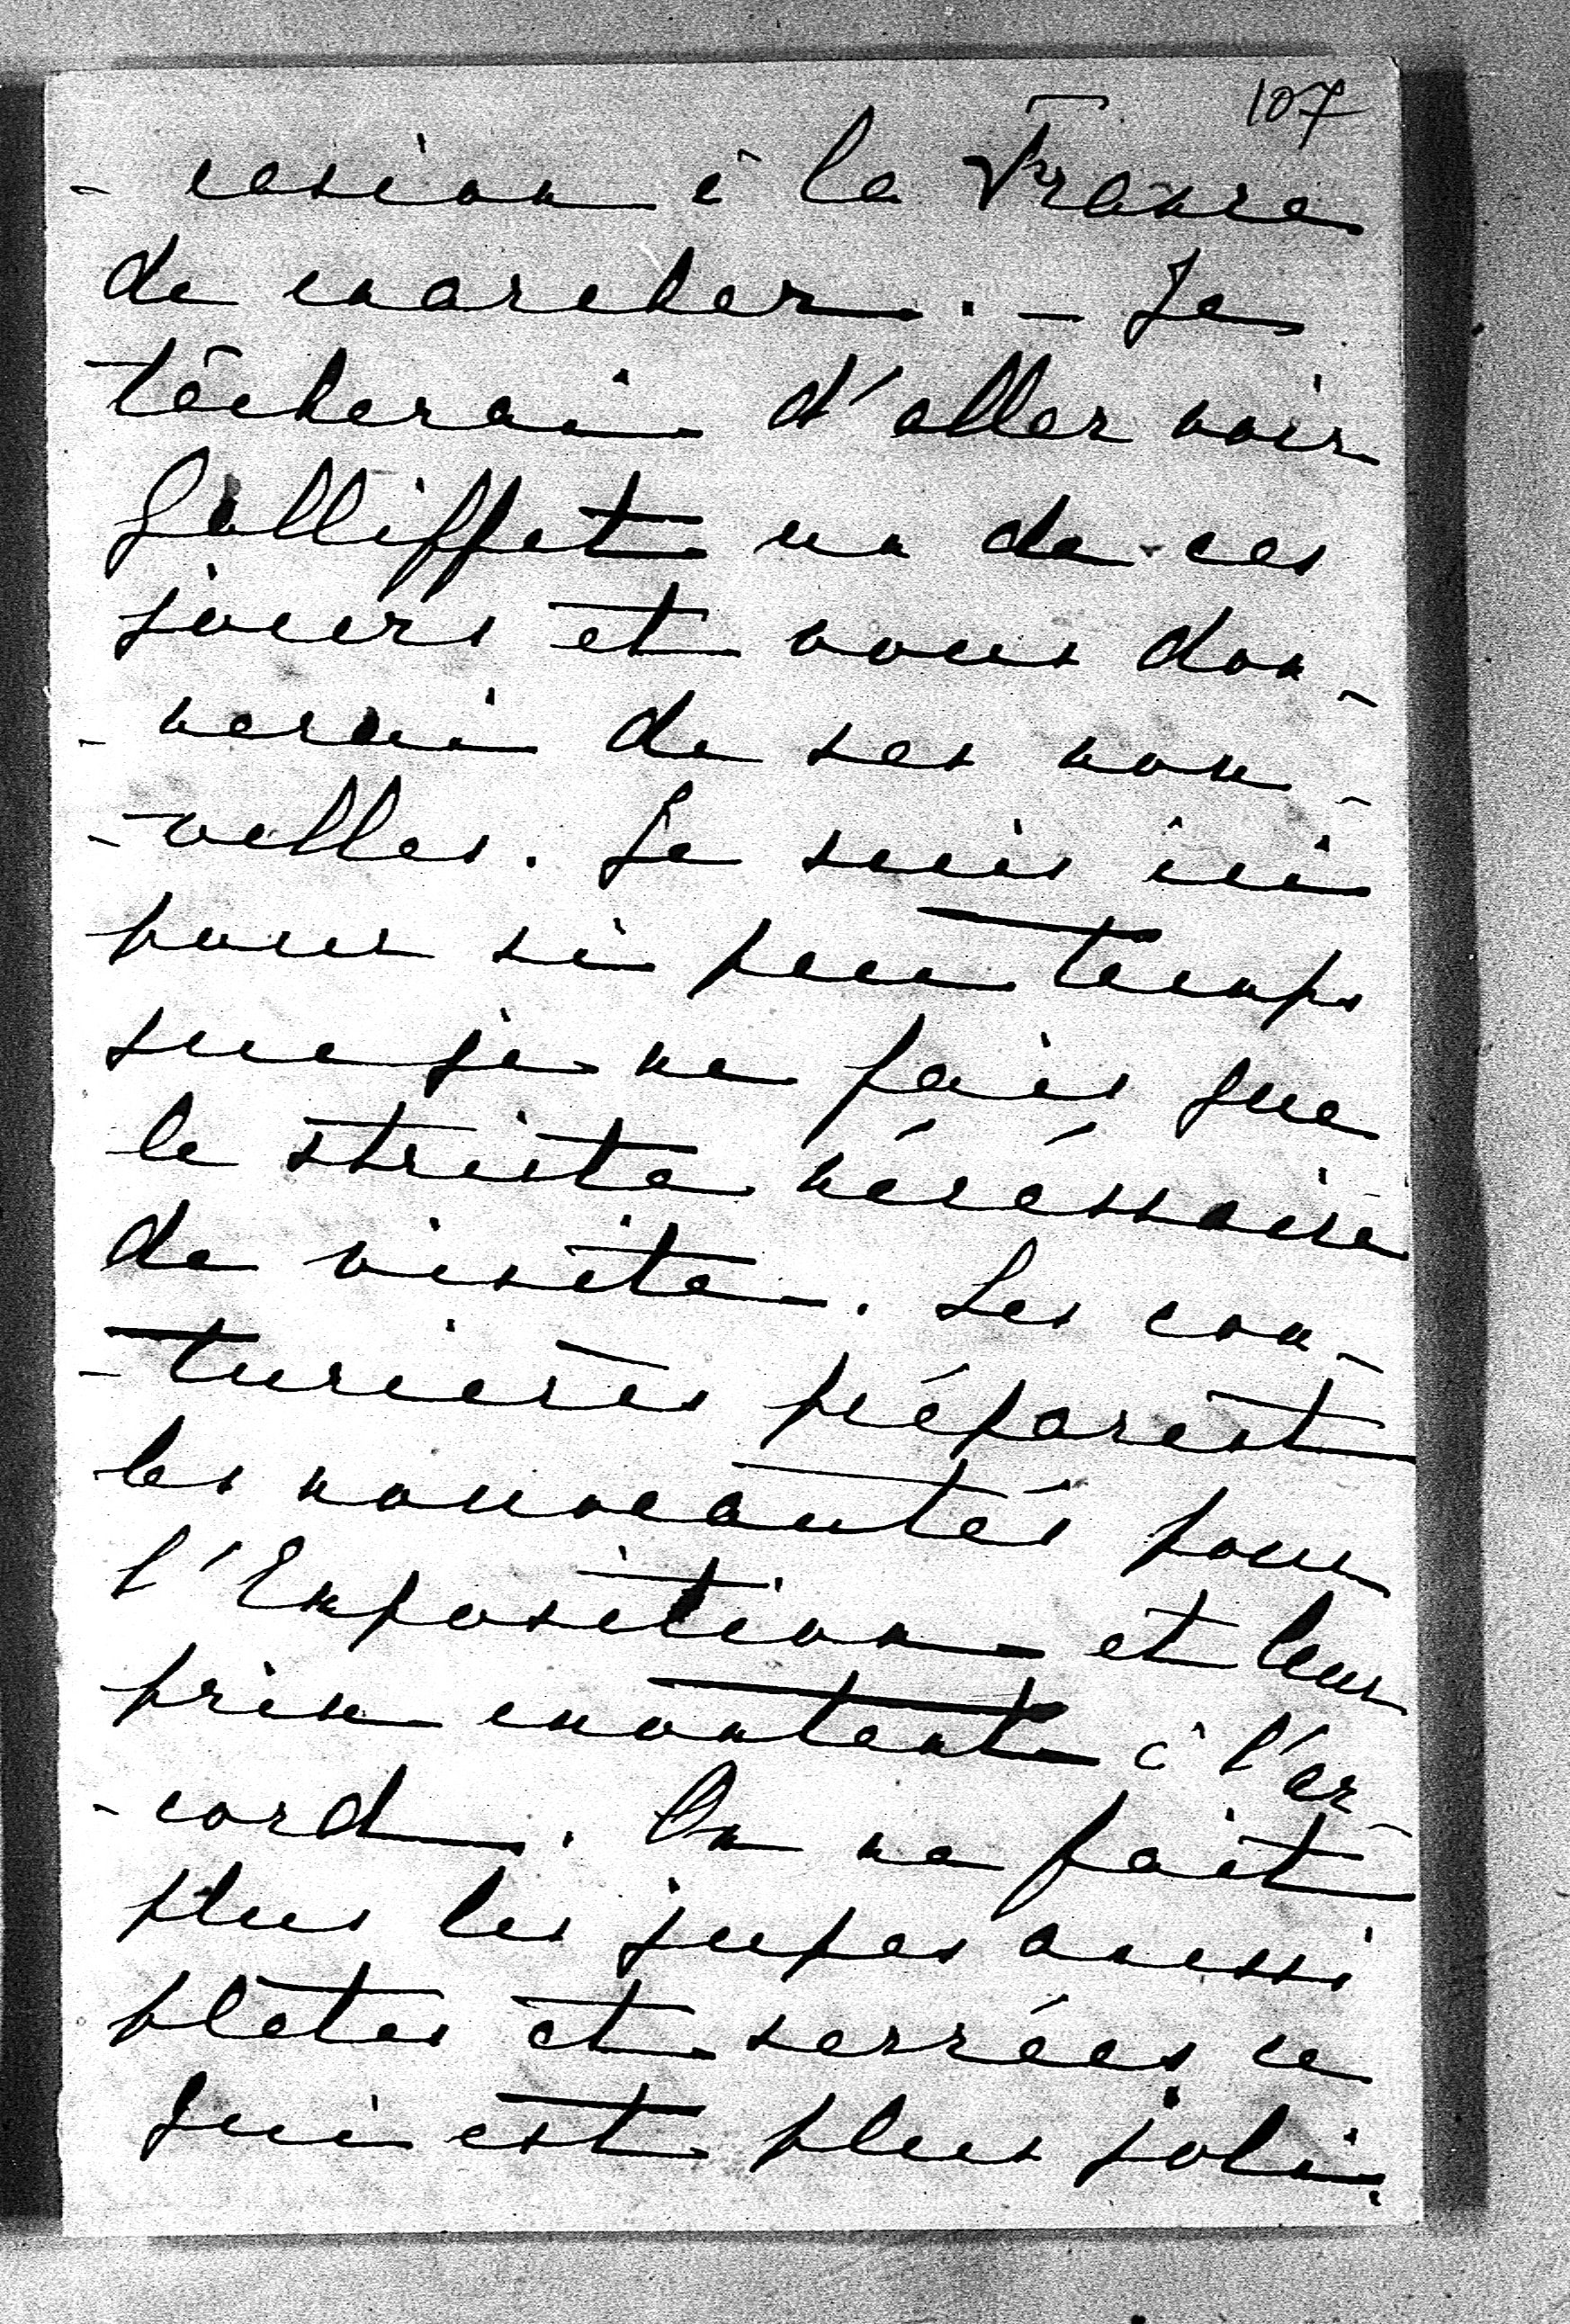 107
- casion à la France
de marcher. - Je
tâcherai d'aller voir
Galliffet un de ces
jours et vous don-
- nerai de ses nou-
- velles. Je suis ici
pour si peu temps
que je ne fais que
le stricte nécessaire
de visite. Les cou-
- turières préparent
les nouveautés pour
l'Exposition et leur
prix montent à l'ac-
- cord. On ne fait
plus les jupes aussi
plates et serrées ce
qui est plus joli.